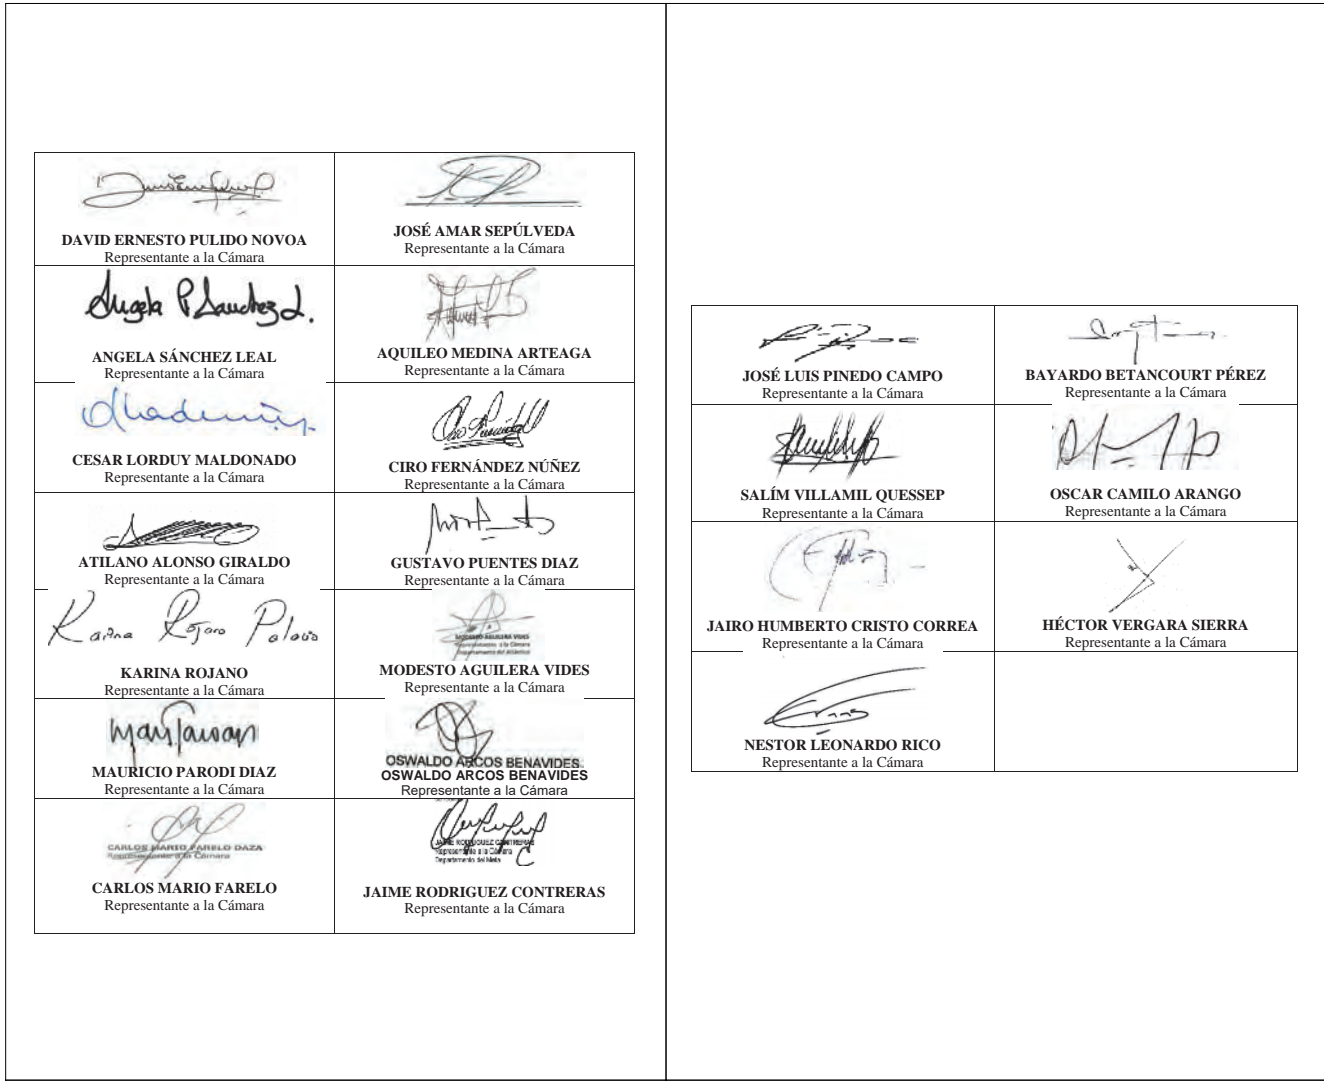 DAVID ERNESTO PULIDO NOVOA
Representante a la Cámara
JOSÉ AMAR SEPÚLVEDA
Representante a la Cámara
Angela P Sanchez L.
ANGELA SÁNCHEZ LEAL
Representante a la Cámara
AQUILEO MEDINA ARTEAGA
Representante a la Cámara
CESAR LORDUY MALDONADO
Representante a la Cámara
CIRO FERNÁNDEZ NÚÑEZ
Representante a la Cámara
ATILANO ALONSO GIRALDO
Representante a la Cámara
GUSTAVO PUENTES DIAZ
Representante a la Cámara
Karina Rojano Palacio
KARINA ROJANO
Representante a la Cámara
MODESTO AGUILERA VIDES
Representante a la Cámara
Departamento del Atlántico
MODESTO AGUILERA VIDES
Representante a la Cámara
MAURICIO PARODI DIAZ
Representante a la Cámara
OSWALDO ARCOS BENAVIDES
OSWALDO ARCOS BENAVIDES
Representante a la Cámara
CARLOS MARIO FARELO DAZA
Representante a la Cámara
CARLOS MARIO FARELO
Representante a la Cámara
JAIME RODRIGUEZ CONTRERAS
Representante a la Cámara
Departamento del Meta
JAIME RODRIGUEZ CONTRERAS
Representante a la Cámara
JOSÉ LUIS PINEDO CAMPO
Representante a la Cámara
BAYARDO BETANCOURT PÉREZ
Representante a la Cámara
SALÍM VILLAMIL QUESSEP
Representante a la Cámara
OSCAR CAMILO ARANGO
Representante a la Cámara
JAIRO HUMBERTO CRISTO CORREA
Representante a la Cámara
HÉCTOR VERGARA SIERRA
Representante a la Cámara
NESTOR LEONARDO RICO
Representante a la Cámara